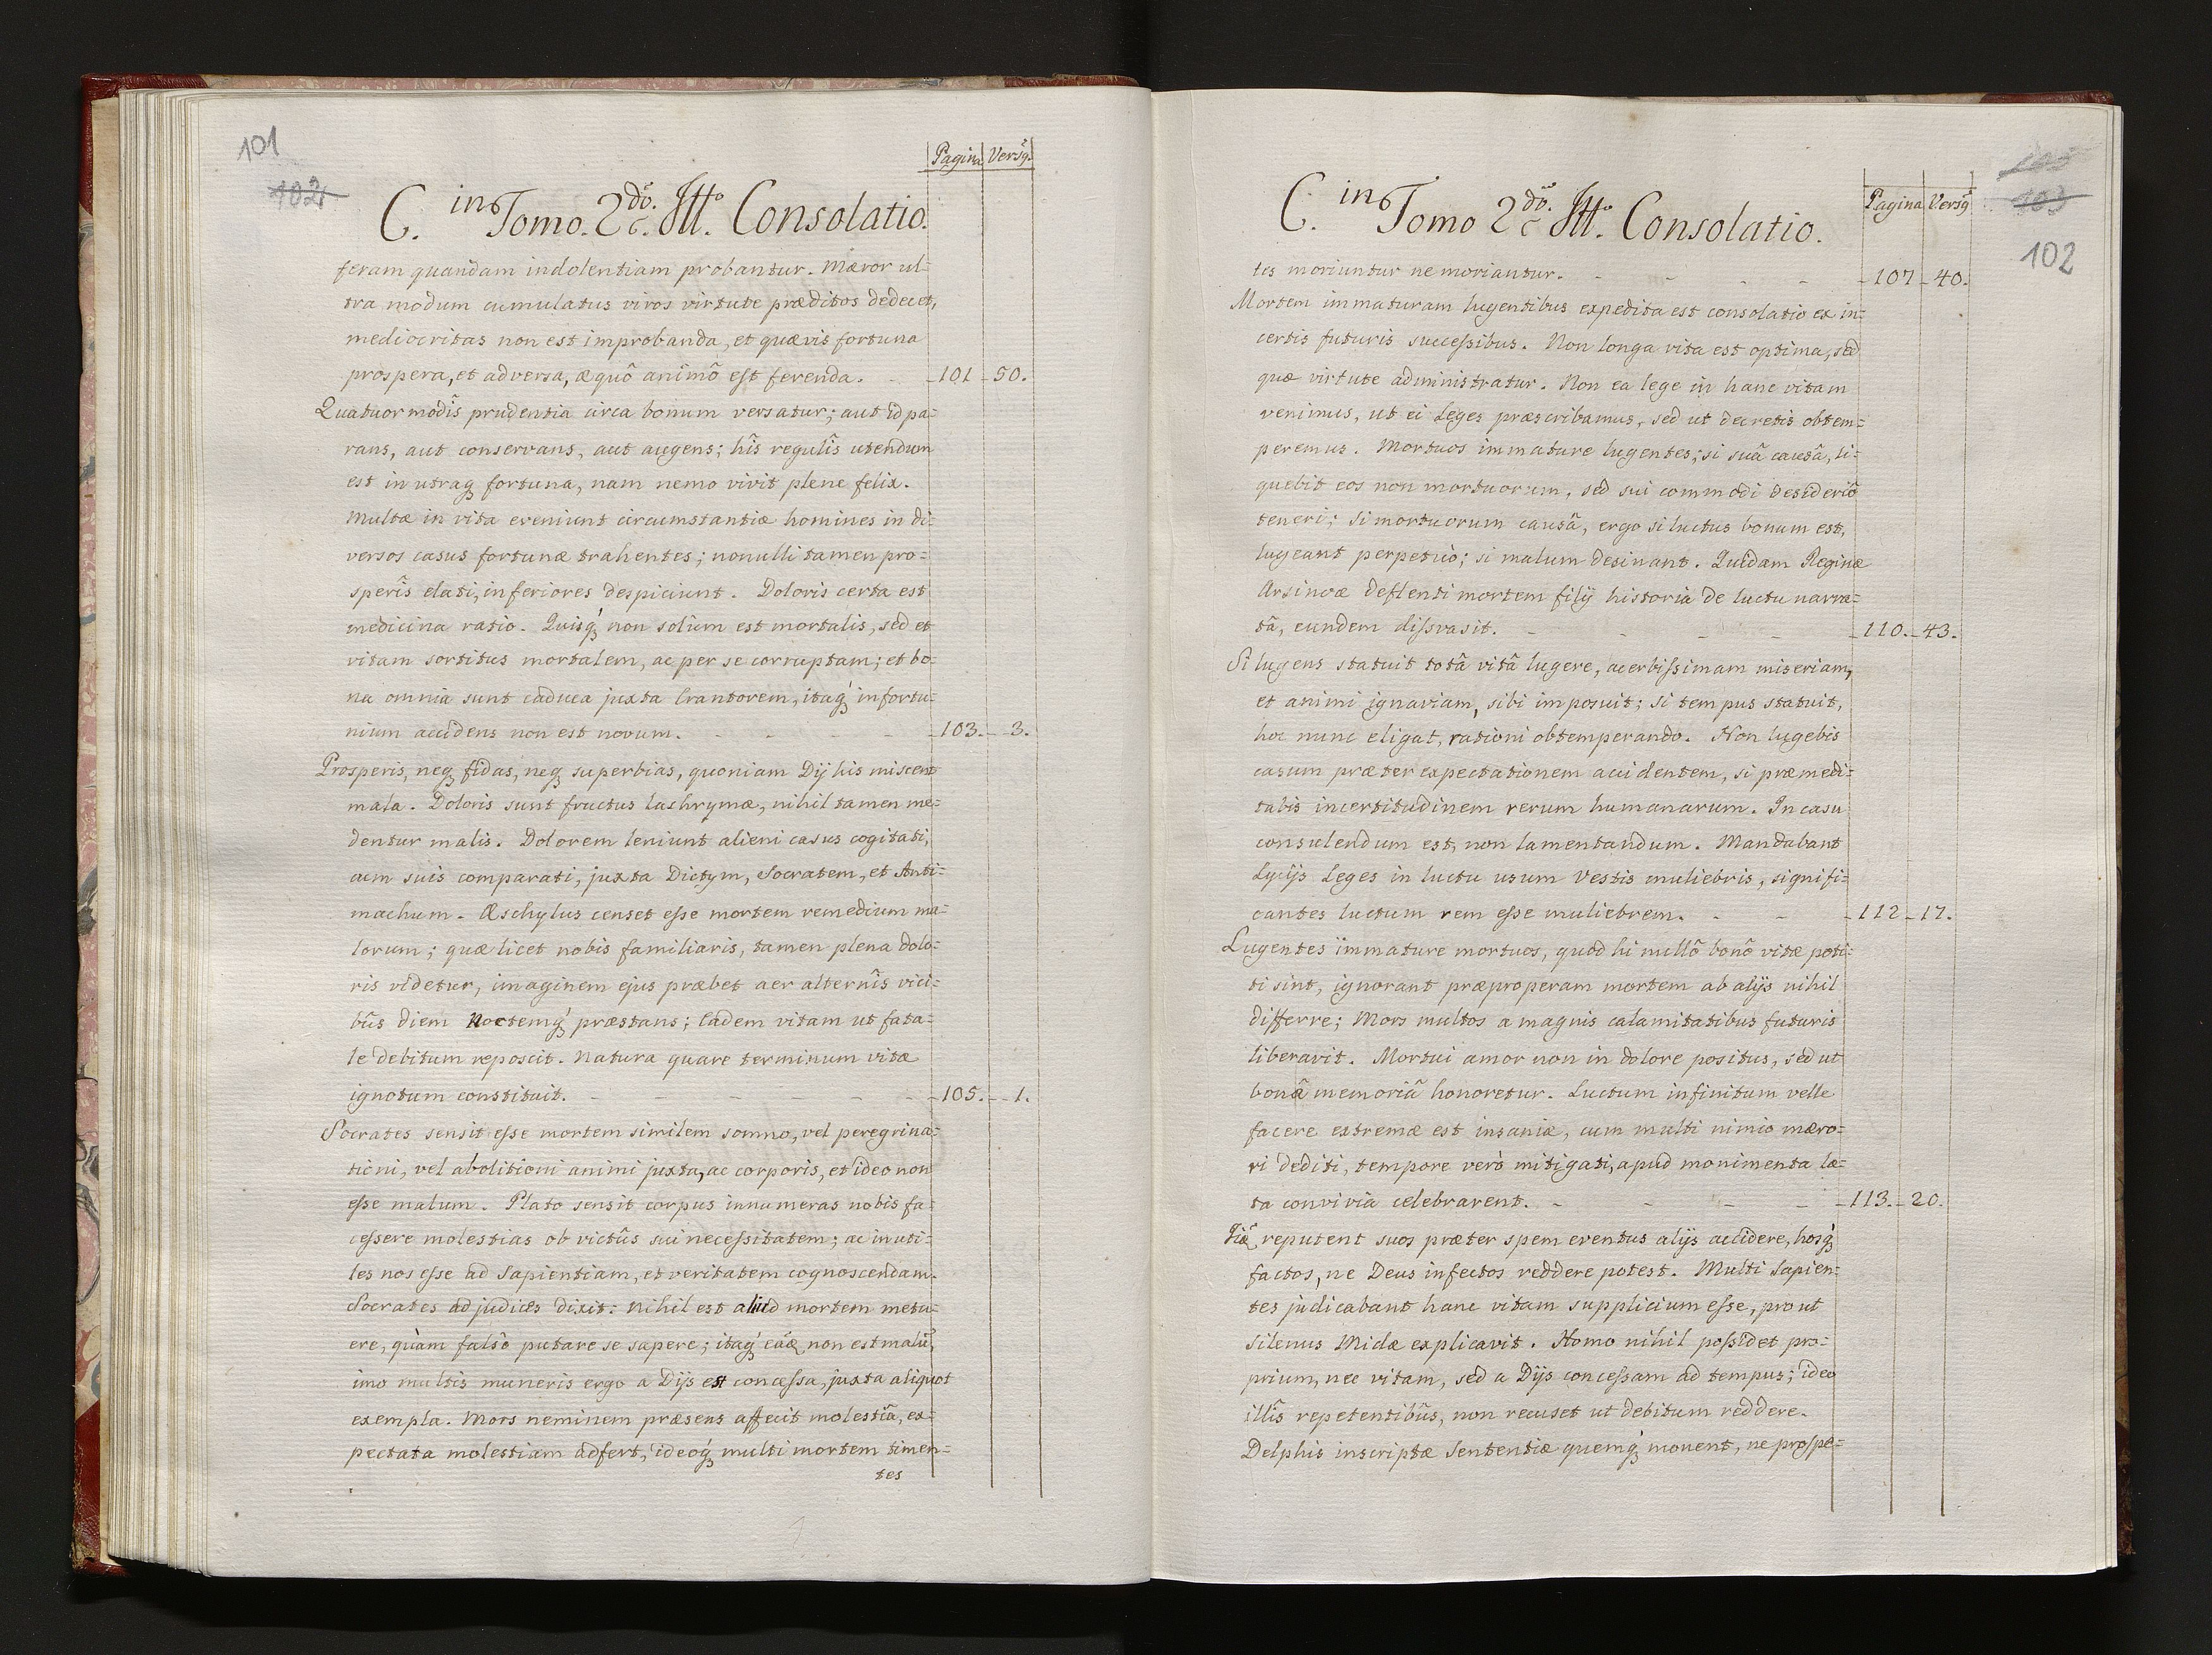 101
102
Pagina Versq̃
C. in Tomo. 2do. Ittō. Consolatio.
feram quandam indolentiam probantur. Mæror ul=
tra modum cumulatus viros virtute præditos dedecet,
mediocritas non est improbanda, et quævis fortuna
prospera, et adversa, æquô animô est ferenda. - 101 - 50.
Quatuor modîs prudentia circa bonum versatur; aut id pa=
rans, aut conservans, aut augens; hîs regulîs utendum
est in utraq fortuna, nam nemo vivit plene felix.
Multæ in vita eveniunt circumstantiæ homines in di=
versos casus fortunæ trahentes; nonulli tamen pro=
sperîs elati, inferiores despiciunt. Doloris certa est
medicina ratio. Quisq́ non solùm est mortalis, sed et
vitam sortitus mortalem, ac per se corruptam; et bo=
na omnia sunt caduca juxta Crantorem, itaq́ infortu=
nium accidens non est novum. - - - - 103. - 3.
Prosperis, neq fidas, neq superbias, quoniam Dij his miscent
mala. Doloris sunt fructus lachrymæ, nihil tamen me=
dentur malis. Dolorem leniunt alieni casus cogitati,
acm suis comparati, juxta Dictym, Socratem, et Anti=
machum. Æschylus censet esse mortem remedium ma=
lorum; quæ licet nobis familiaris, tamen plena dolo=
ris videtur, imaginem ejus præbet aer alternîs vici=
bûs diem Noctemq́ præstans; Eadem vitam ut fata=
le debitum reposcit. Natura quare terminum vitæ
ignotum constituit. - - - - - 105. - 1.
Socrates sensit esse mortem similem somno, vel peregrina=
tioni, vel abolitioni animi juxta, ac corporis, et ideo non
esse malum. Plato sensit corpus innumeras nobis fa=
cessere molestias ob victûs sui necessitatem; ac inuti=
les nos esse ad Sapientiam, et veritatem cognoscendam.
Socrates ad judices dixit: Nihil est aliud mortem metu=
ere, quàm falsò putare se sapere; itaq́ non est malũ,
imo multis muneris ergo a Dijs est concessa, juxta aliquot
exempla. Mors neminem præsens affecit molestiâ, ex=
pectata molestiam adfert, ideoq́ multi mortem timen=
tes
103
102
Pagina Versq̃
C. in Tomo 2do. Ittō. Consolatio.
tes moriuntur ne moriantur. - - - - 107 - 40.
Mortem immaturam lugentibus expedita est consolatio ex in=
certis futuris successibus. Non longa vita est optima, sed
quæ virtute administratur. Non ea lege in hanc vitam
venimus, ut ei Leges præscribamus, sed ut decretis obtem=
peremus. Mortuos immature lugentes; si suâ causâ, li=
quebit eos non mortuorum, sed sui commodi desideriô
teneri; Si mortuorum causâ, ergo si luctus bonum est,
lugeant perpetuò; si malum desinant. Quidam Reginæ
Arsinoæ deflenti mortem filij historia de luctu narra=
tâ, eundem dissvasit. - - - - 110. - 43.
Si lugens statuit totâ vitâ lugere, acerbissimam miseriam,
et animi ignaviam, sibi imposuit; Si tempus statuit,
hoc nunc eligat, rationi obtemperando. Non lugebis
casum præter expectationem accidentem, si præmedi=
tabis incertitudinem rerum humanarum. In casu
consulendum est, non lamentandum. Mandabant
Lycijs Leges in luctu usum Vestis muliebris, signifi=
cantes luctum rem esse muliebrem. - - - 112 - 17.
Lugentes immature mortuos, quod hi nullô bonô vitæ poti=
ti sint, ignorant præproperam mortem ab alijs nihil
differre; Mors multos a magnis calamitatibus futuris
liberavit. Mortui amor non in dolore positus, sed ut
bonâ memoriâ honoretur. Luctum infinitum velle
facere extremæ est insaniæ, cum multi nimio mæro=
ri dediti, tempore verò mitigati, apud monimenta læ=
ta convivia celebrarent. - - - - 113. - 20.
reputent suos præter spem eventus alijs accidere, hosq́
factos, ne Deus infectos reddere potest. Multi Sapien=
tes judicabant hanc vitam supplicium esse, prout
Silenus Midæ explicavit. Homo nihil possidet pro=
prium, nec vitam, sed a Dijs concessam ad tempus; ideo
illîs repetentibûs, non recuset ut debitum reddere.
Delphis inscriptæ Sententiæ quemq́ monent, ne prospe=